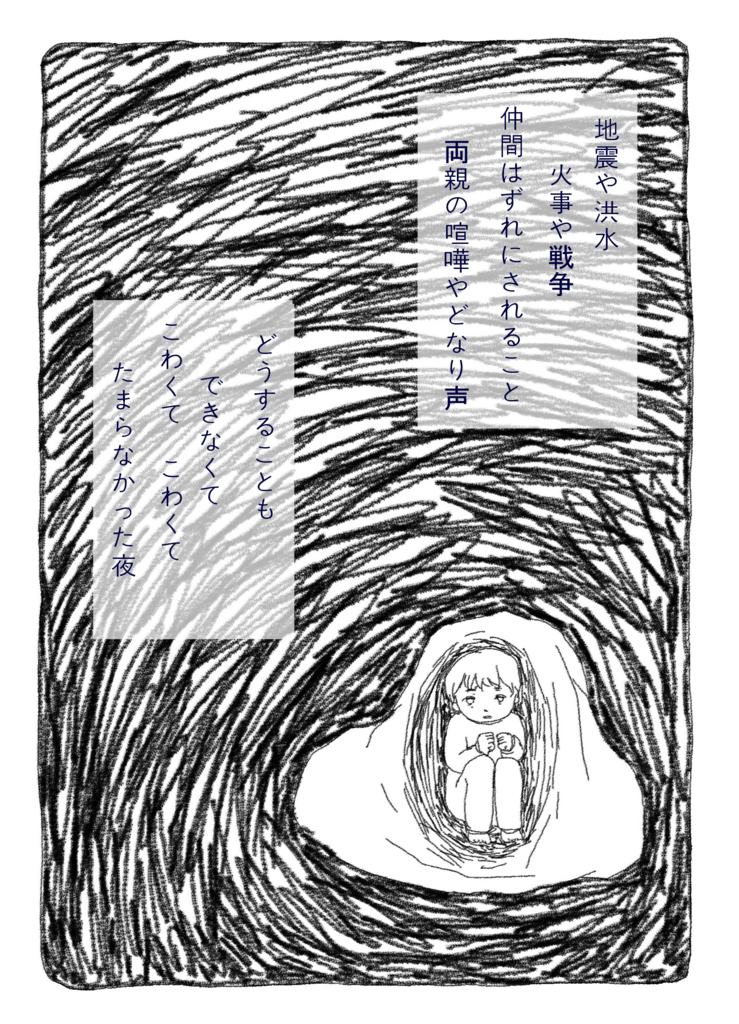 地震や洪水
火事や戦争
仲間はずれにされること
両親の喧嘩やどなり声
どうすることも
できなくて
こわくて　こわくて
たまらなかった夜